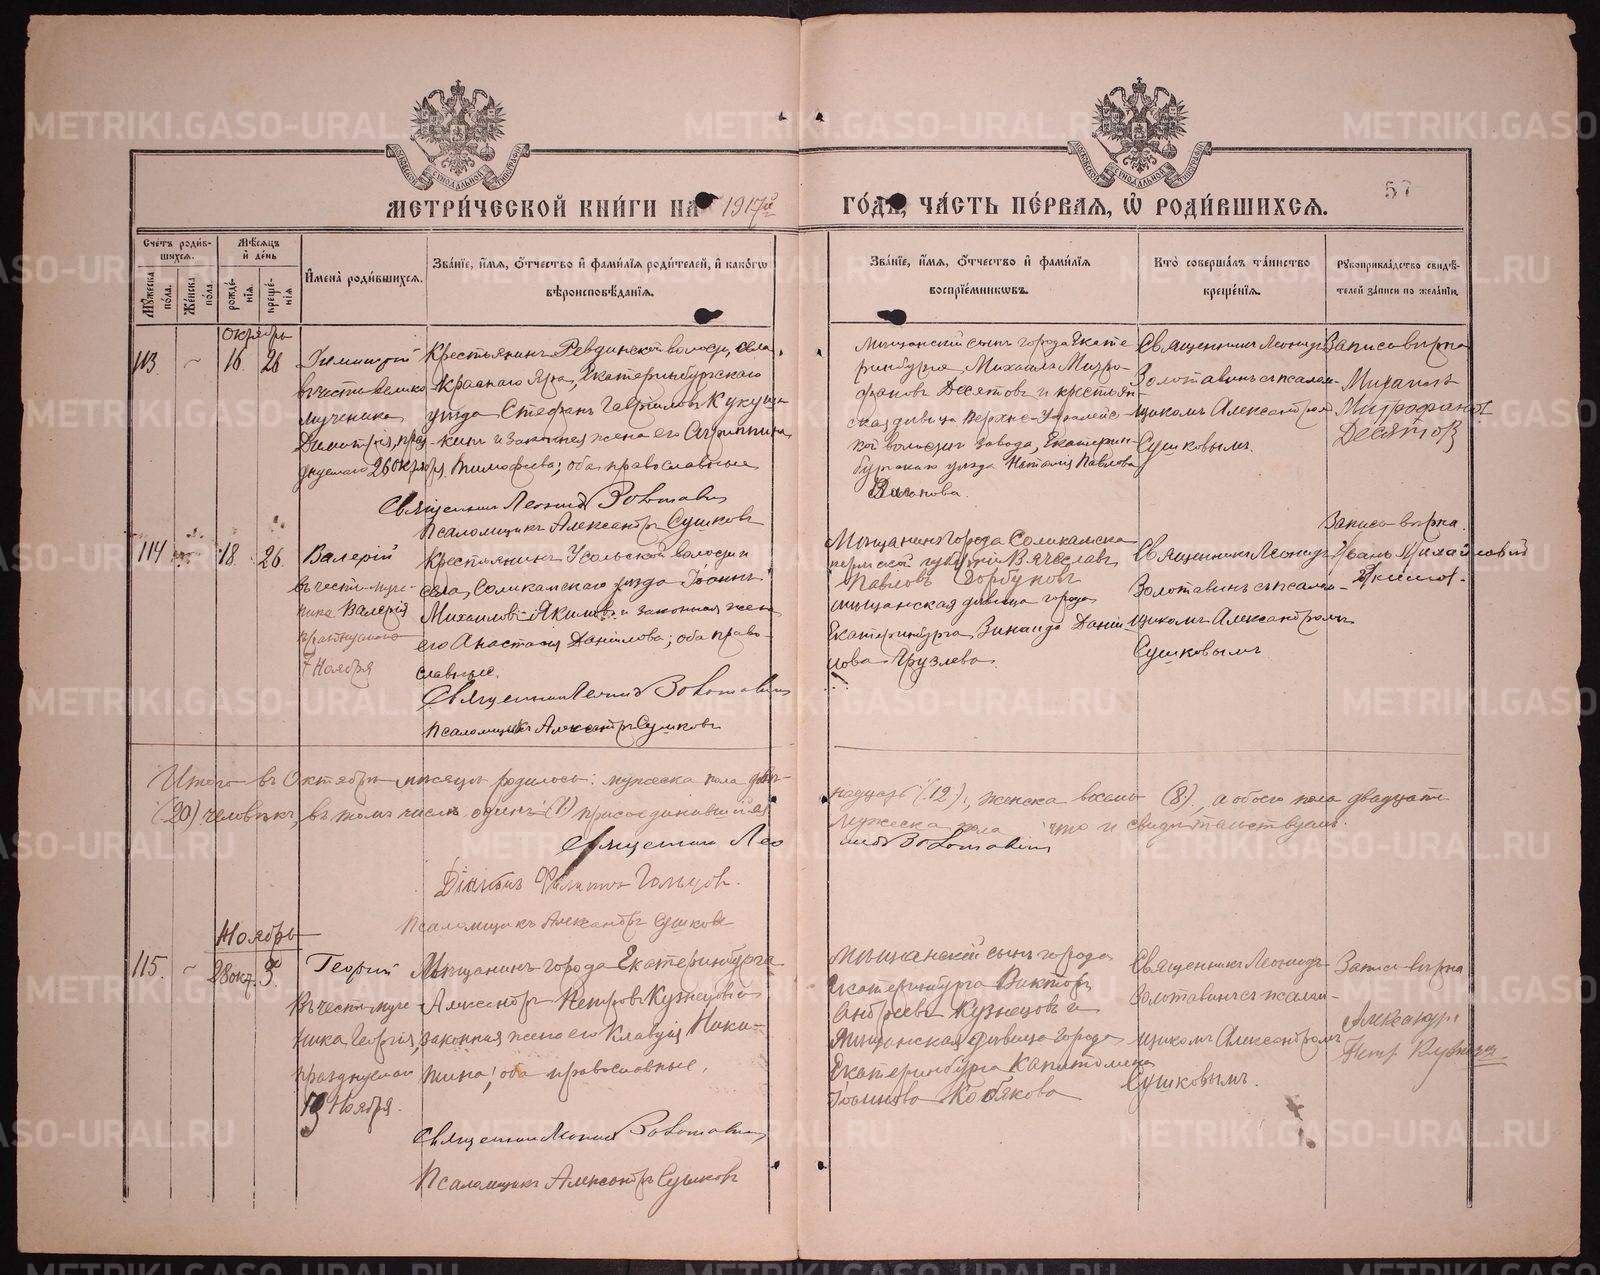 МЕТРИЧЕСКОЙ КНИГИ НА 1917й
ГОДЪ, ЧАСТЬ ПЕРВАЯ, Ѡ РОДИВШИХСЯ.
57
Счетъ родившихся.
Мужеска пола.
Женска пола.
Мѣсяцъ и день
рожденія.
крещенія.
Имена родившихся.
Званіе, имя, отчество и фамилія родителей, и какого вѣроисповѣданія.
Званіе, имя, отчество и фамилія воспріемниковъ.
Кто совершалъ таинство крещенія.
Рукоприкладство свидѣтелей записи по желанію.
Октябрь
113. ~ 16 26
Димитрій
въ честь велико
мученика
Димитрія, празд
днуемаго 26 Октября.
Крестьянинъ Ревдинской волости, села
Краснаго Яра, Екатеринбургскаго
уѣзда Стефанъ Гавріиловъ Кукуш
кинъ и законная жена его Агриппина
Тимофеева; оба православные
Священникъ Леонидъ Золотавинъ
Псаломщикъ Александръ Сушковъ
Мѣщанскій сынъ города Екате
ринбурга, Михаилъ Митро
фановъ Десятовъ и крестьян
ская дѣвица Верхне-Уфалейс
кой волости и завода, Екатерин
бургскаго уѣзда Наталія Павлова
Священникъ Леонидъ
Золотавинъ съ псалом
щикомъ Александромъ
Сушковымъ.
Запись вѣрна
Михаилъ
Митрофановъ
Десятовъ
114 18. 26.
Валерій
въ честь муче
ника Валерія
празднуемаго
7 Ноября
Крестьянинъ Усольской волости и
села, Соликамскаго уѣзда Іоаннъ
Михаиловъ Якимовъ и законная жена
его Анастасія Даніилова; оба право
славные.
Священникъ Леонидъ Золотавинъ
Псаломщикъ Александръ Сушковъ
Мѣщанинъ города Соликамска
пермской губерніи Вячеславъ
Павловъ Горбуновъ
мѣщанская дѣвица города
Екатеринбурга Зинаида Даніи
лова Ярузлева.
Священникъ Леонидъ
Золотавинъ съ псалом
щикомъ Александромъ
Сушковымъ.
Запись вѣрна.
Иванъ Михайловъ
Якимовъ.
Итого въ Октябрѣ мѣсяцѣ родилось: мужеска пола двѣ-
надцать (12), женска восемь (8), а обоего пола двадцать
(20) человѣкъ, въ томъ числѣ одинъ (1) присоединившійся
мужеска пола что и свидѣтельствуемъ.
Священникъ Леонидъ Золотавинъ
Діаконъ Гольцовъ.
Псаломщикъ Александръ Сушковъ
Ноябрь
115. ~ 28 окт. 5.
Георгій
Въ честь муче
ника Георгія,
празднуемаго
Ноября.
Мѣщанинъ города Екатеринбурга
Александръ Петровъ Кузнецовъ и
законная жена его Клавдія Ники-
тина; оба православные.
Священникъ Леонидъ Золотавинъ
Псаломщикъ Александръ Сушковъ
Мѣщанскій сынъ города
Екатеринбурга Викторъ
Андреевъ Кузнецовъ и
Мѣщанская дѣвица города
Екатеринбурга Капитолина
Іоаннова Кобякова
Священникъ Леонидъ
Золотавинъ съ псалом
щикомъ Александромъ
Сушковымъ.
Запись вѣрна
Александръ
Петр Кузнецовъ
METRIKI.GASO-URAL.RU